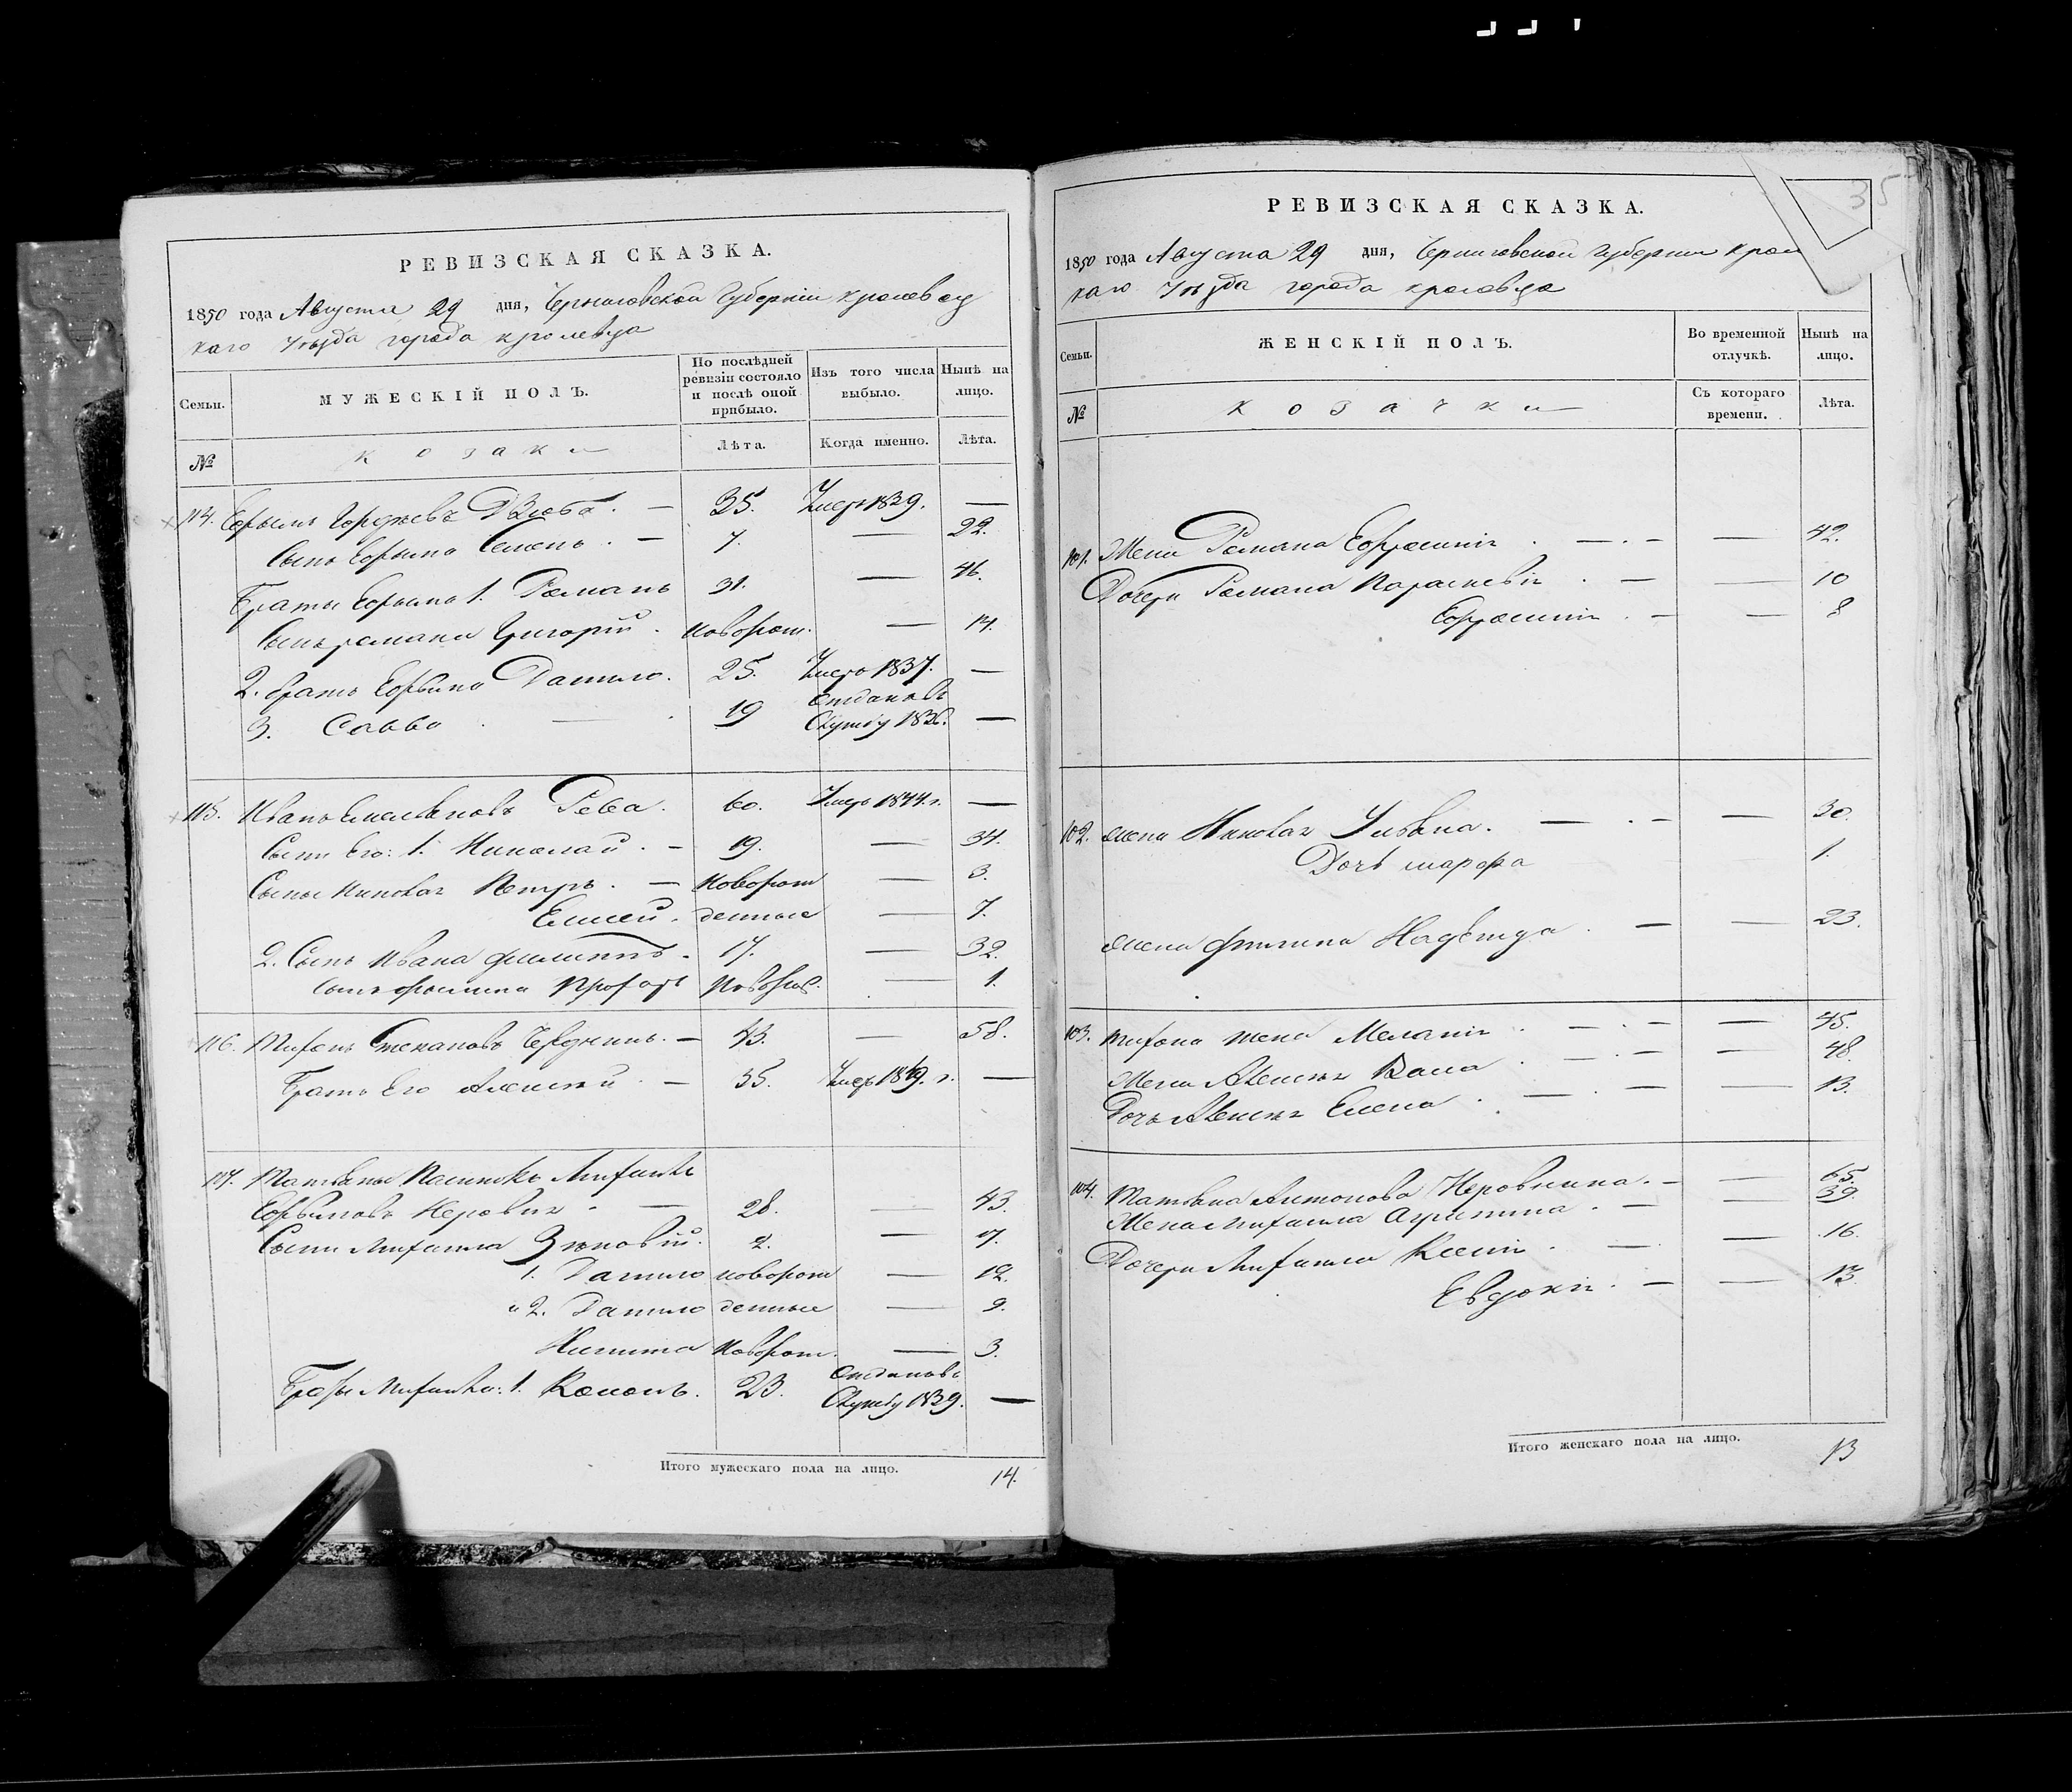 РЕВИЗСКАЯ СКАЗКА.
1850 года Августа 29 дня, Черниговской Губерніи Кролевец
каго Уѣзда города Кролевца
Семьи.
МУЖЕСКІЙ ПОЛЪ.
По послѣдней ревизіи состояло и послѣ оной прибыло.
Изъ того числа выбыло.
Нынѣ на лицо.
№
козаки
Лѣта.
Когда именно.
Лѣта.
114. Ефимъ Дзюба. — 35. Умеръ 1839. —
Сынъ Ефима Семенъ. — 7. — 22.
Браты Ефима 1. Романъ 31. — 46.
Сынъ романа Григорій. новорож. — 14.
2. братъ Ефима Данило. 25. Умеръ 1837. —
3. Савва 19 Отданъ въ
Службу 1836. —
115. Иванъ Емельяновъ Рева. 60. Умеръ 1844 г. —
Сыни Его: 1. Николай. — 19. — 34.
Сыны Николая Петръ. — новорож — 3.
Елисей. денные — 7.
2. Сынъ Ивана Филиппъ. 17. — 32.
Сынъ филипа Прохоръ Новорож. — 1.
116. Тихонъ Степановъ — 43. — 58.
Братъ Его Алексѣй — 35. Умеръ 1849. г. —
117. Татьяны Пасинокъ Михайло
28. — 43.
Сыни Михаила Зѣновій. 2. — 17.
1. Данило новорож — 12.
" 2. Данило денные — 9.
Никита Новорож. — 3.
Браты Михайла: 1. Кононъ. 23. Отданъ въ
Службу 1839. —
Итого мужескаго пола на лицо. 14.
35
РЕВИЗСКАЯ СКАЗКА.
1850 года Августа 29 дня, Черниговской Губерніи Крол
каго Уѣзда города Кролевца
Семьи.
ЖЕНСКІЙ ПОЛЪ.
Во временной отлучкѣ.
Нынѣ на лицо.
№
козачки
Съ котораго времени.
Лѣта.
101. Жена Романа Ефросинія — 42.
Дочери Романа Параскевія — 10
Ефросинія — 8
102. жена Николая Ульяна. — 30.
Дочь марфа 1.
жена филипа Надежда — 23.
103. Тихона жена Меланія — 45.
Жена Алексѣя — 48.
Дочь Алексѣя Елена — 13.
104. Татьяна Антонова — 65.
Жена Михаила Агрипина — 39.
Дочери Михаила Ксенія — 16.
Евдокія — 13.
Итого женскаго пола на лицо. 13